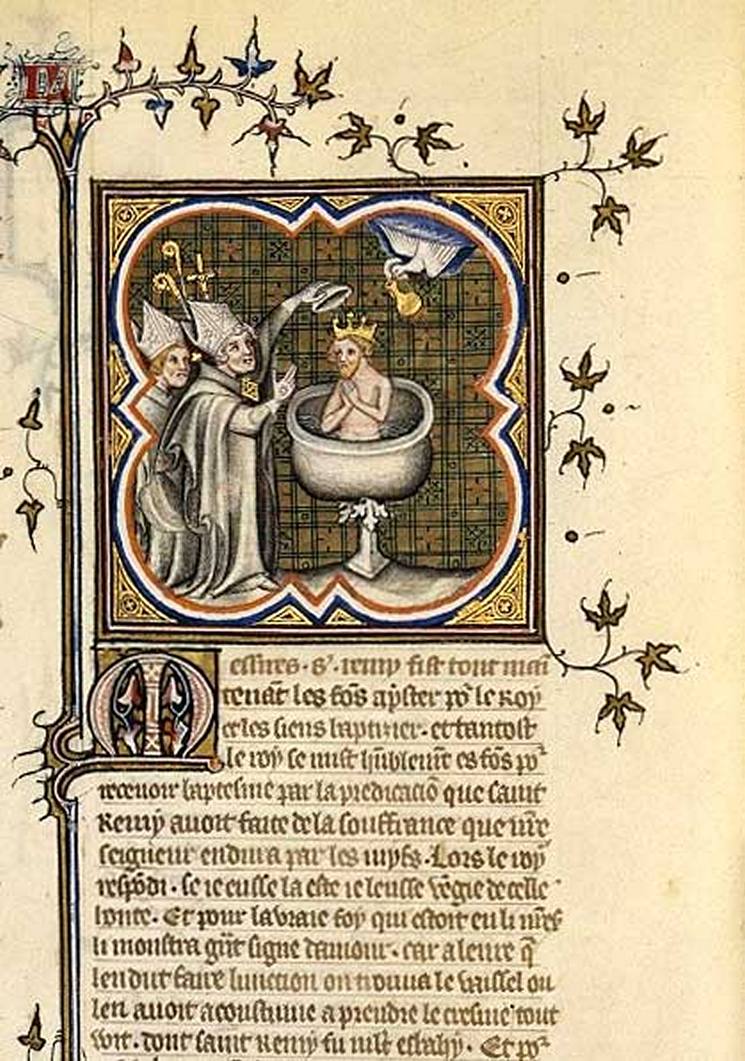 Messires. S'. remy fist tout main
tenāt les fōs ap̄ster po᷑ le Roy
et les siens baptizier. et tantost
le roy se mist hūblemēt es fōs po᷑
recevoir baptesme par la predicaciō que saint
Remy avoit faite de la souffrance que n̄re
seigneur endura par les iuyfs. Lors le roy
respōdi. se ie eusse la este ie leusse vēgie de celle
honte. Et pour la vraie foy qui estoit en li
li monstra grāt signe damour. car a leure q̄
len dut faire lunction on trouva le vaissel ou
len avoit acoustume a prendre le cresme tout
vit. dont saint Remy fu mlt esbahy. Et po᷑